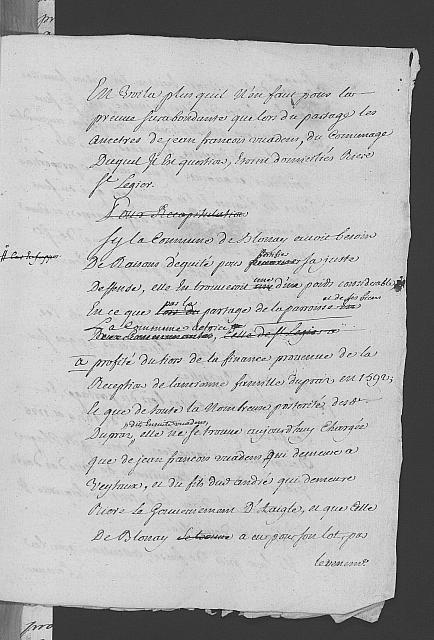 En voila plus quil n'en faut pour la
preuve surabondante que lors du partage les
ancetres de jean françois vuadens, du Communage
Duquel il en question, etoint domiciliés Riere
St Legier.
Pour Recapitulation
Sy la Commune de Blonay avoit besoin
De Raisons d'equité pour fortifier sa juste
Deffense, elle En trouveroit une d'un poids considerable
En ce que par la partage de la parroisse et de ses biens
La Commune
a profité du tiers de la finance provenue de la
Reception de lancienne famille dupraz en 1592;
le que de toute la Nombreuse posterité des d.
Dupraz dits vuadens, elle ne se trouve aujourd'huy Chargée
que de jean françois vuadens qui demeure a
Veytaux, et du fils du andré qui demeure
Riere le Gouvernement D'Aigle, et que Celle
De Blonay a eu pour son lot, pas